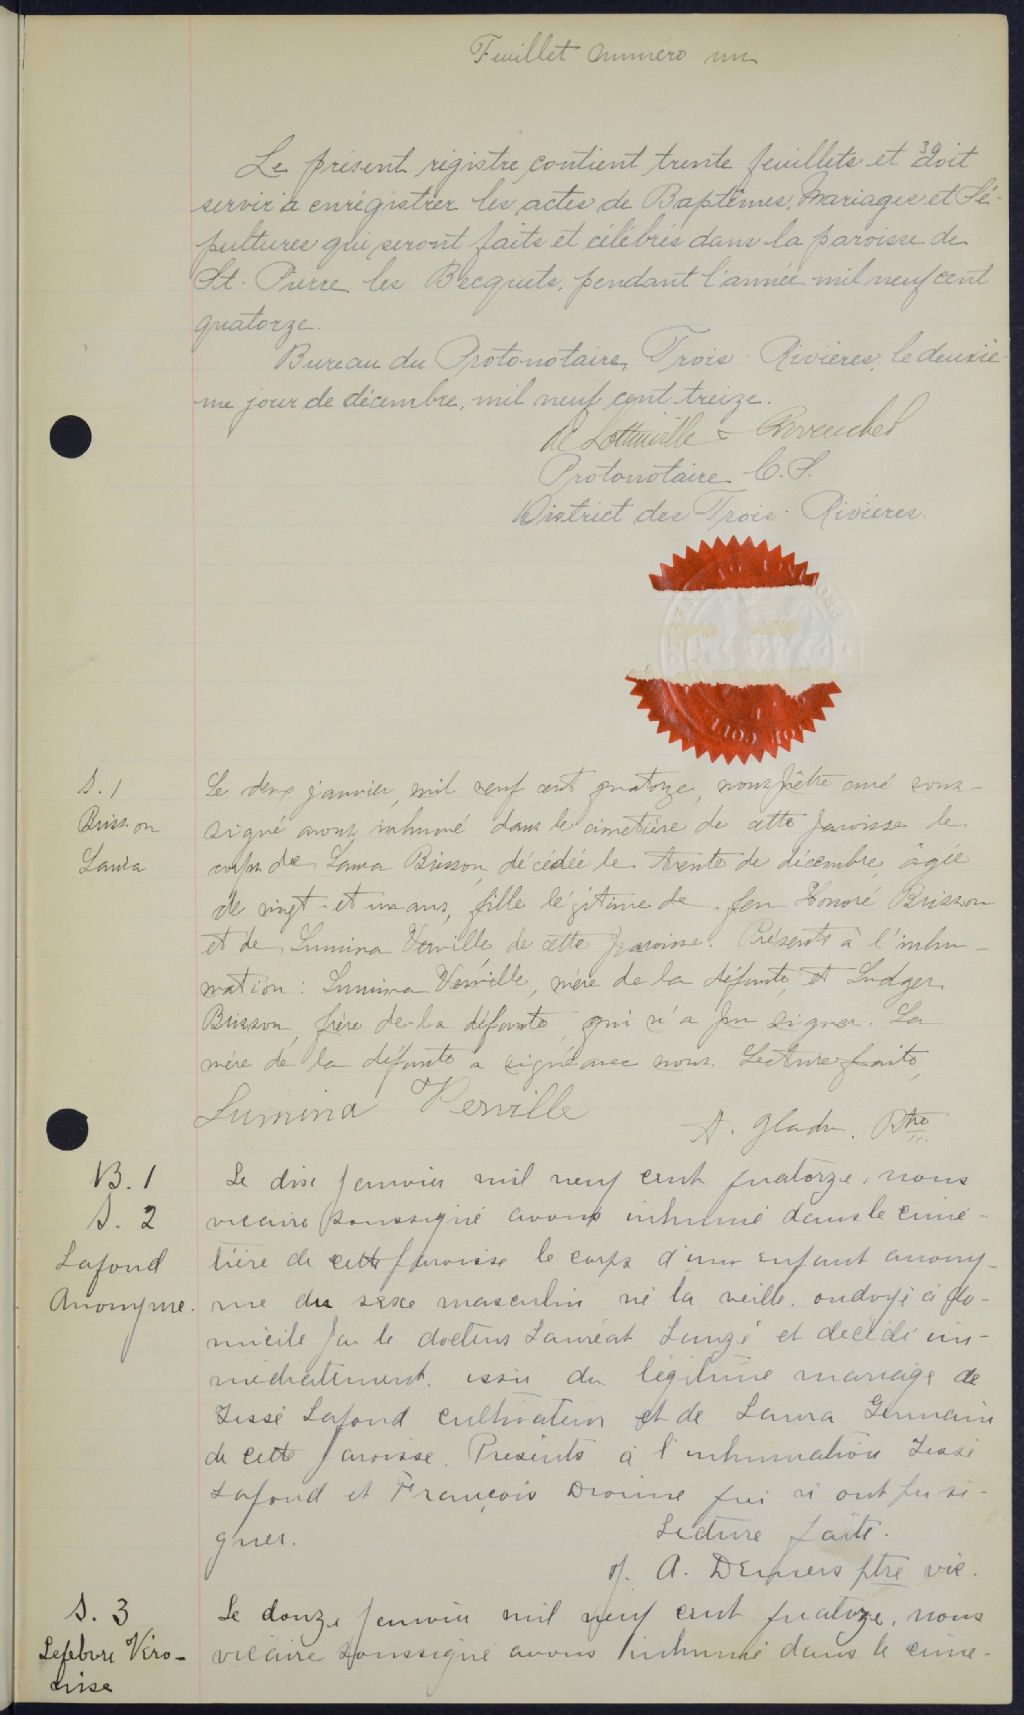 Feuillet numéro un
Le présent régistre contient trente feuillets et 30 doit
servir à enrégistrer les actes de Baptêmes, Mariages et Sé-
pultures qui seront faits et célébrés dans la paroisse de
St. Pierre les Becquets, pendant l'année mil neuf cent
quatorze.
Bureau du Protonotaire, Trois-Rivières, le deuxiè-
me jour de décembre, mil neuf cent treize.
de Lottinville &
Protonotaire C. S.
District des Trois-Rivières.
S. 1
Brisson
Laura
Le deux janvier, mil neuf cent quatorze, nous prêtre curé sous-
signé avons inhumé dans le cimetière de cette paroisse le
corps de Laura Brisson, décédée le trente de décembre, âgée
de vingt-et-un ans, fille légitime de feu Honoré Brisson
et de Lumina Verville de cette paroisse. Présents à l'inhu-
mation: Lumina Verville, mère de la défunte, et Ludger
Brisson, frère de la défunte, qui n'a pu signer. La
mère de la défunte a signé avec nous. Lecture faite,
Lumina Verville
A. Gladu. Ptre
B. 1
S. 2
Lafond
Anonyme.
Le dix janvier mil neuf cent quatorze, nous
vicaire soussigné avons inhumé dans le cime-
tière de cette paroisse le corps d'un enfant anony-
me du sexe masculin né la veille, ondoyé à do-
micile par le docteur Lauréat Lauzé et décédé im-
médiatement, issu du légitime mariage de
Jessé Lafond cultivateur et de Laura Germain
de cette paroisse. Présents à l'inhumation Jessé
Lafond et François Drouin qui n'ont pu si-
gner. Lecture faite.
J. A. Demers ptre vic.
S. 3
Lefebvre Véro-
nise
Le douze janvier mil neuf cent quatorze, nous
vicaire soussigné avons inhumé dans le cime-